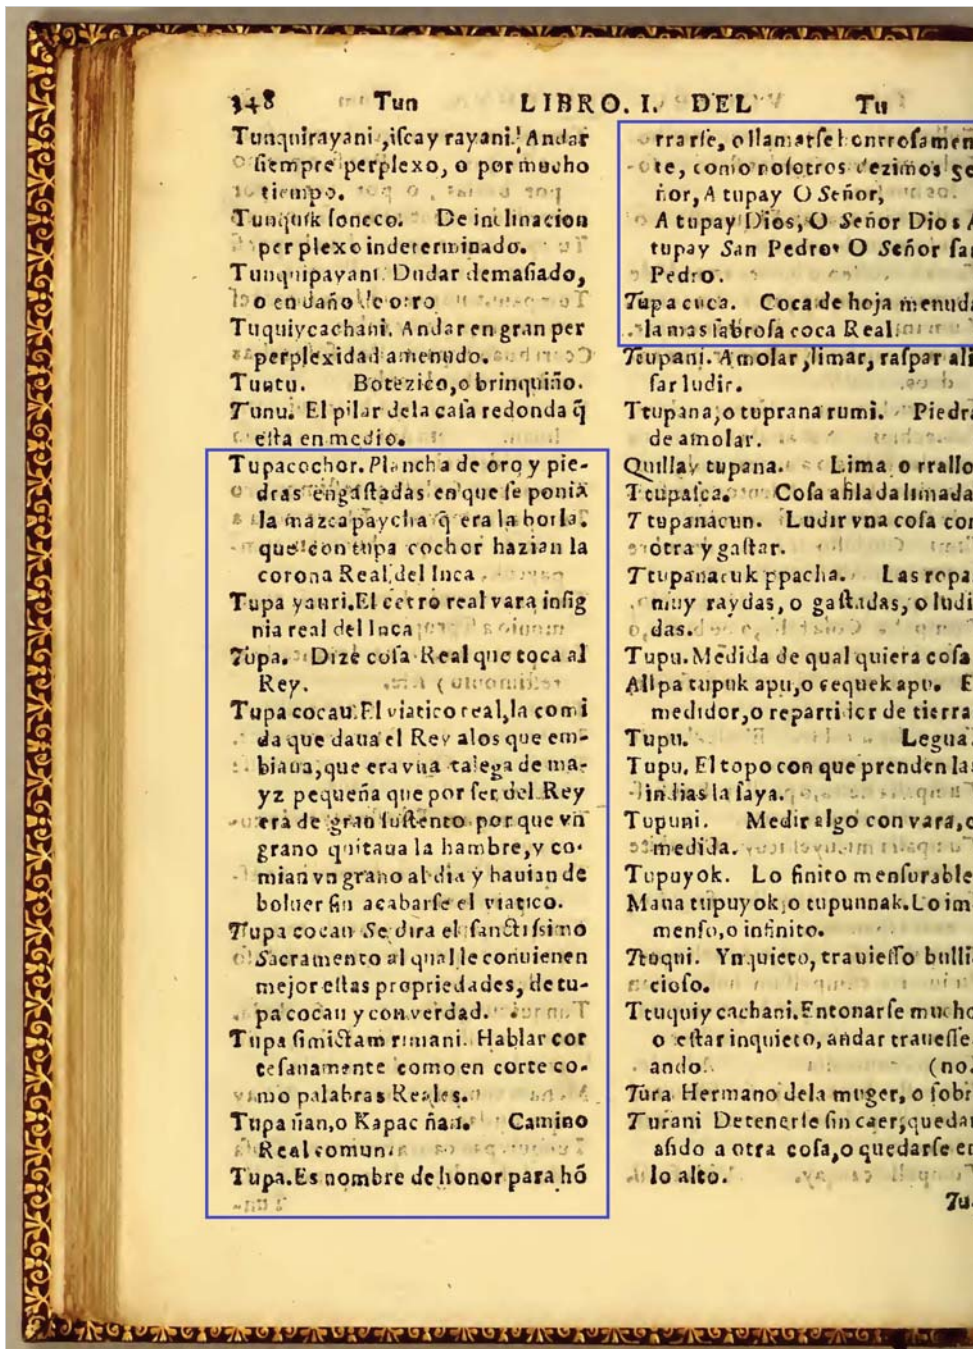 348 Tun LIBRO. I. DEL Tu
Tunquirayani, iscay rayani. Andar
siempre perplexo, o por mucho
tiempo.
Tunquik soncco. De inclinacion
perplexo indeterminado.
Tunquipayani Dudar demasiado,
o en daño de otro
Tuquiycachani. Andar en gran per
perplexidad amenudo.
Tuatu. Botezico, o brinquiño.
Tunu. El pilar dela casa redonda q̃
esta en medio.
Tupacochor. Plancha de oro y pie-
dras engastadas en que se ponia
la mazcapaycha q̃ era la borla.
que con tupa cochor hazian la
corona Real del Inca
Tupa yauri. El cetro real vara insig
nia real del Inca
Tupa. Dize cosa Real que toca al
Rey.
Tupa cocau. El viatico real, la comi
da que daua el Rey alos que em-
biaua, que era vna talega de ma-
yz pequeña que por ser del Rey
era de gran sustento porque vn
grano quitaua la hambre, y co-
mian vn grano al dia y hauian de
boluer sin acabarse el viatico.
Tupa cocau Se dira el sanctissimo
Sacramento al qual le conuienen
mejor estas propriedades, de tu-
pa cocau y con verdad.
Tupa simictam rimani. Hablar cor
tesanamente como en corte co-
mo palabras Reales.
Tupa ñan, o Kapac ñan. Camino
Real comun
Tupa. Es nombre de honor para hõ
rrarse, o llamarse honrrosamen
te, como nosotros dezimos se
ñor, A tupay O Señor,
A tupay Dios, O Señor Dios A
tupay San Pedro O Señor san
Pedro.
Tupa cuca. Coca de hoja menuda
la mas sabrosa coca Real.
Ttupani. Amolar, limar, raspar ali
sar ludir.
Ttupana, o tuprana rumi. Piedra
de amolar.
Quillay tupana. Lima o rrallo
Ttupasca. Cosa afilada limada
Ttupanacun. Ludir vna cosa con
otra y gastar.
Ttupanacuk ppacha. Las ropa
muy raydas, o gastadas, o ludi
das.
Tupu. Medida de qual quiera cosa
Allpa tupuk apu, o cequek apu. E
medidor, o repartidor de tierra
Tupu. Legua.
Tupu. El topo con que prenden las
indias la saya.
Tupuni. Medir algo con vara, o
medida.
Tupuyok. Lo finito mensurable
Mana tupuyok, o tupunnak. Lo im
menso, o infinito.
Ttoqui. Ynquieto, trauiesso bulli
cioso.
Ttuquiy cachani. Entonarse mucho
o estar inquieto, andar trauesse
ando. (no.
Tura Hermano dela muger, o sobri
Turani Detenerse sin caer, quedar
asido a otra cosa, o quedarse en
lo alto.
Tu.